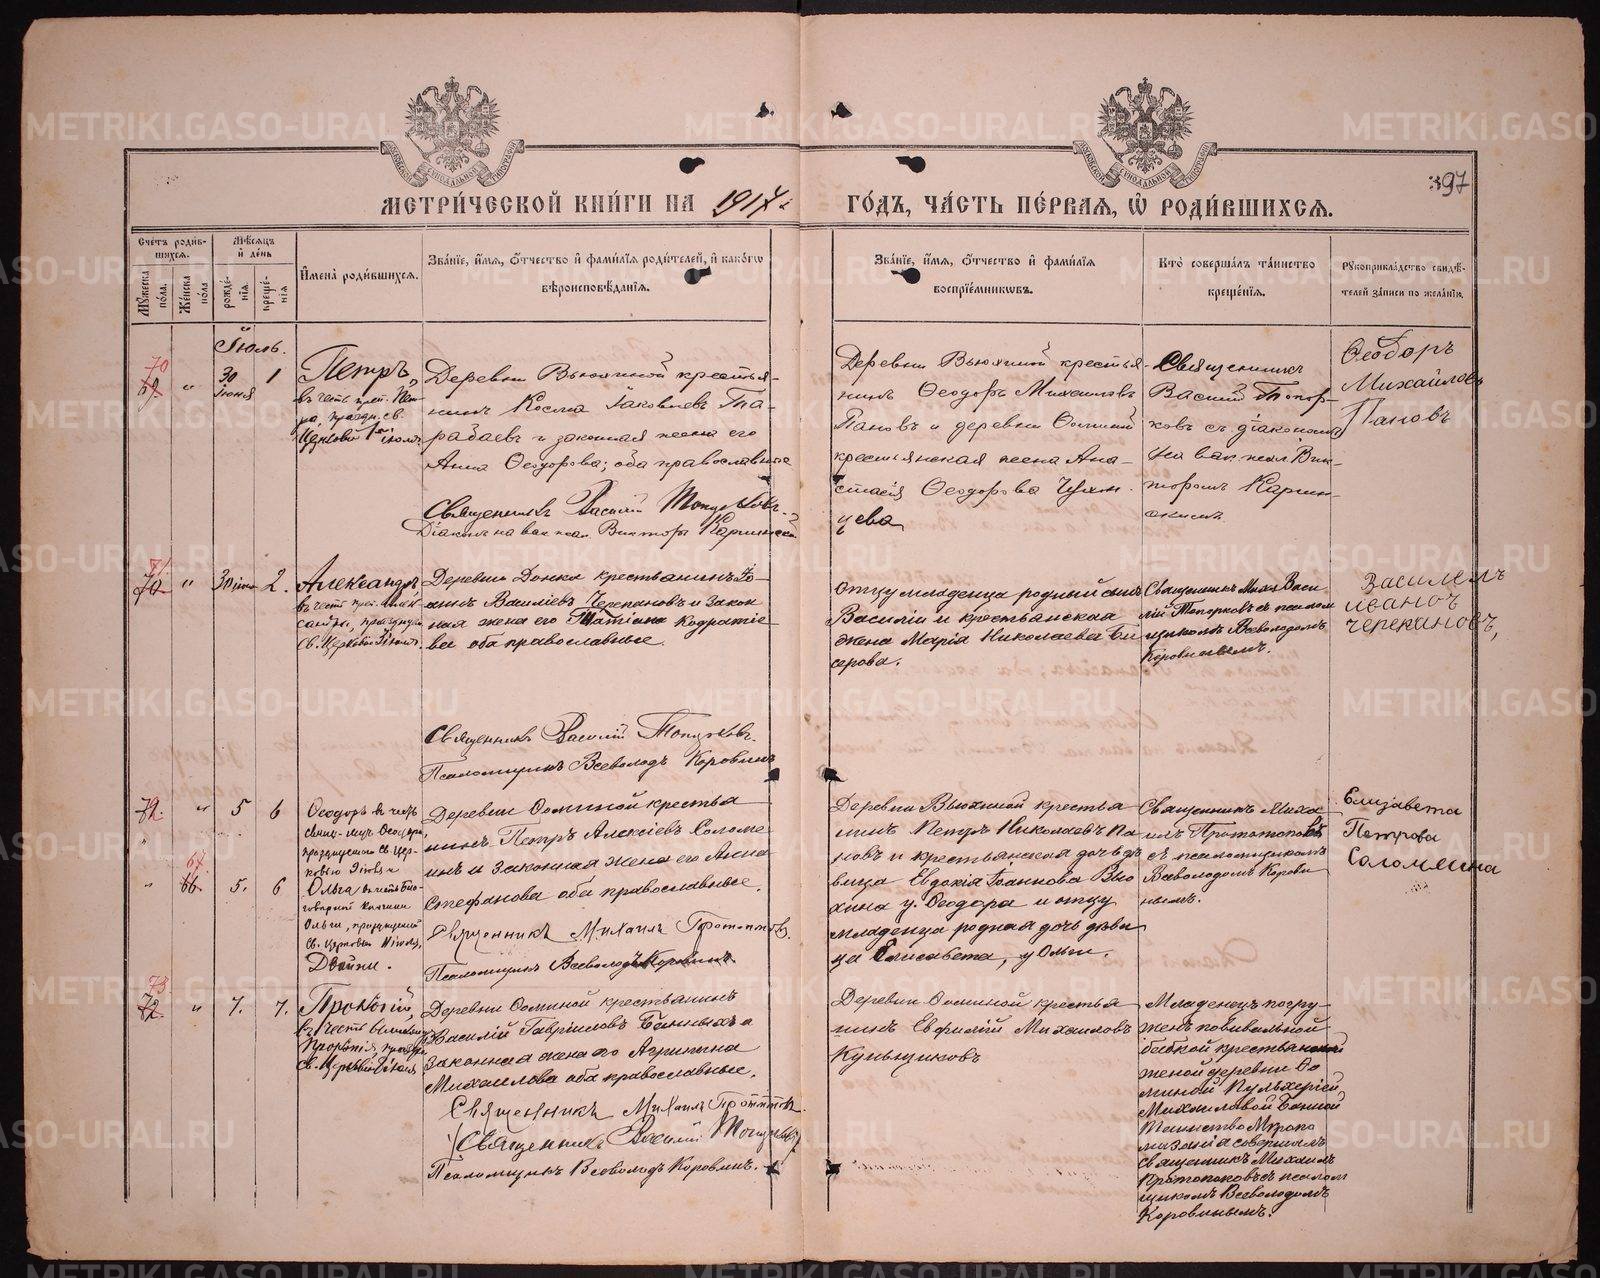 МЕТРИ́ЧЕСКОЙ КНИ́ГИ НА 1917 ГО́ДЪ, ЧА́СТЬ ПЕ́РВАЯ, Ѡ҆ РОДИ́ВШИХСѦ.
397
Сче́тъ роди́в-
шихсѧ.
Мꙋ́жеска по́ла.
Же́нска по́ла
Мѣ́сѧцъ и҆ де́нь
рожде́-
нїѧ.
креще́-
нїѧ
И҆мена̀ роди́вшихсѧ.
Зва́нїе, и҆́мѧ, ѻ҆́тчество и҆ фами́лїѧ роди́телей, и҆ како́гѡ
вѣроисповѣ́данїѧ.
Зва́нїе, и҆́мѧ, ѻ҆́тчество и҆ фами́лїѧ
воспрїе́мникѡвъ.
Кто̀ соверша́лъ та́инство
креще́нїѧ.
Рꙋкоприкла́дство свидѣ́-
телей за́писи по жела́нїю.
Іюль.
70
69 " 30 Іюня 1
Петръ,
въ честь
св.
Деревни Вьюхиной крестья-
нинъ Косма Іаковлевъ Та-
рабаевъ и законная жена его
Анна Ѳеодорова; оба православные
Священникъ Василій Топорковъ.
Діаконъ на вак. псал. Викторъ Каринскій
Деревни Вьюхиной крестья-
нинъ Ѳеодоръ Михаиловъ
Пановъ и деревни Ѳоминой
крестьянская жена Ана-
стасія Ѳеодорова
Священникъ
Василій Топор-
ковъ съ діакономъ
на вак. псал. Вик-
торомъ Карин-
скимъ.
Ѳеодоръ
Михайловъ
Пановъ
71
70 " 30 іюня 2.
Александръ
въ честь
Деревни крестьянинъ Іо-
аннъ Василіевъ Черепановъ и закон
ная жена его Татіана Кодратіе
ва оба православные.
Священникъ Василій Топорковъ.
Псаломщикъ Всеволодъ Коровинъ
отцу младенца родный сынъ
Василій и крестьянская
жена Марія Николаева Би
серова.
Священникъ Васи
лій Топорковъ съ псалом
щикомъ Всеволодомъ
Коровинымъ.
Василемъ
Иваноч
Черепановъ,
72. " 5 6
Ѳеодоръ въ честь
67
" 66 5. 6
Ольга въ честь
Ольги, празднуемой
Св. Церковью
Двойни.
Деревни Ѳоминой крестья
нинъ Петръ Алексіевъ Соломе
инъ и законная жена его Анна
Стефанова оба православные.
Священникъ Михаилъ Протопоповъ.
Псаломщикъ Всеволодъ Коровинъ.
Деревни Вьюхиной крестья
нинъ Петръ Николаевъ Па
новъ и крестьянская дочь дѣ
вица Евдокія Іоаннова Вью
хина у Ѳеодора и отцу
младенца родная дочь дѣви
ца Елисавета, у Ольги.
Священникъ Миха
илъ Протопоповъ
съ псаломщикомъ
Всеволодомъ Корови
нымъ.
Елизавета
Петрова
Саломеина
73
72 " 7. 7.
Прокопій,
въ честь
Прокопія,
Деревни Ѳоминой крестьянинъ
Василій Гавріиловъ Банныхъ и
законная жена его Агрипина
Михаилова оба православные.
Священникъ Михаилъ Протопоповъ
Священникъ Василій Топорковъ
Псаломщикъ Всеволодъ Коровинъ.
Деревни Ѳоминой крестья
нинъ Евфимій Михаиловъ
Кунщиковъ
Младенецъ погру-
женъ повивальной
бабкой крестьянской
женой деревни Ѳо
миной Пульхеріей
Михаиловой Банной
Таинство Миропо
мазанія совершилъ
священникъ Михаилъ
Протопоповъ съ псалом
щикомъ Всеволодомъ
Коровинымъ.
METRIKI.GASO-URAL.RU